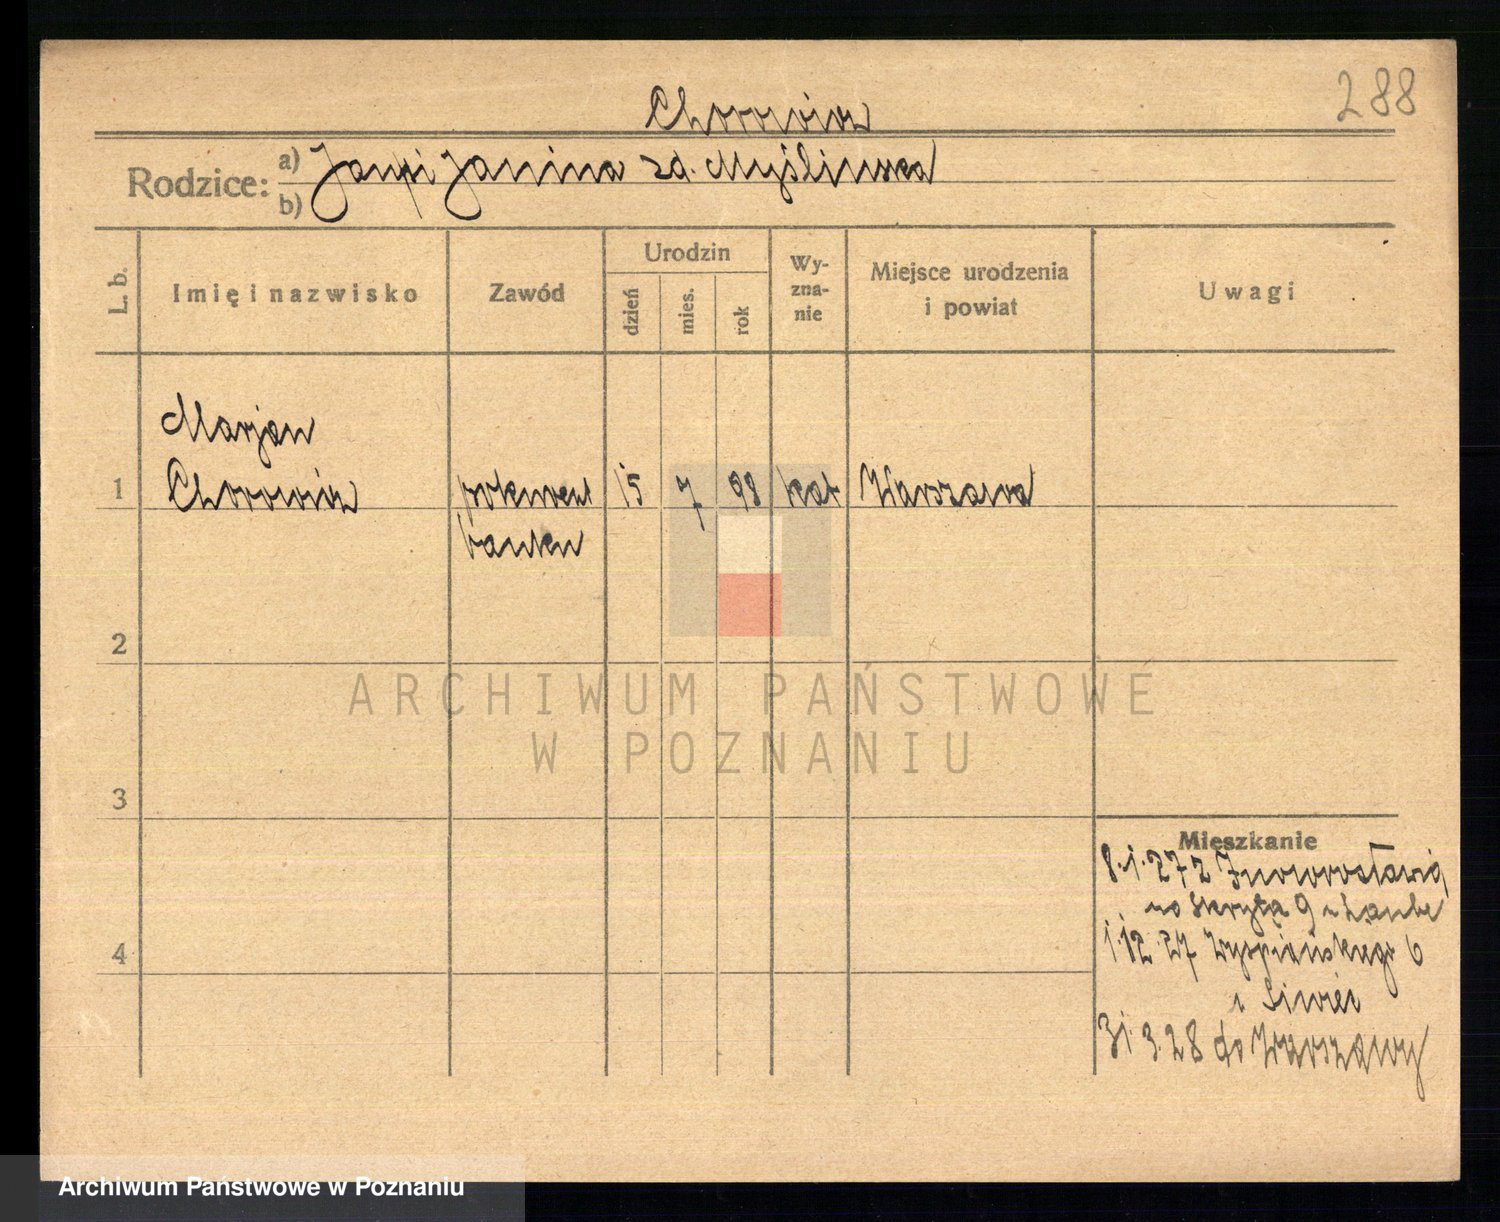 288
Chorowicz
Rodzice:
a) Jan i Janina zd. Myśliwska
b)
L. b.
Imię i nazwisko
Zawód
Urodzin
dzień
mies.
rok
Wy-
zna-
nie
Miejsce urodzenia
i powiat
Uwagi
Marjan
1 Chorowicz prokurent 15 7 98 kat Warszawa
banku
2
3
4
ARCHIWUM PAŃSTWOWE
W POZNANIU
Mieszkanie
8.1.27 z Inowrocławia
Skryta 9
1.12.27 Wyspiańskiego 6
31.3.28 do Warszawy
Archiwum Państwowe w Poznaniu